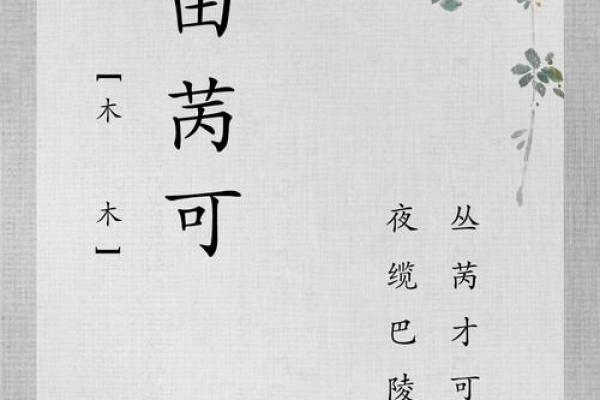 苪可
【木 木】
丛苪才可
夜缆巴陵